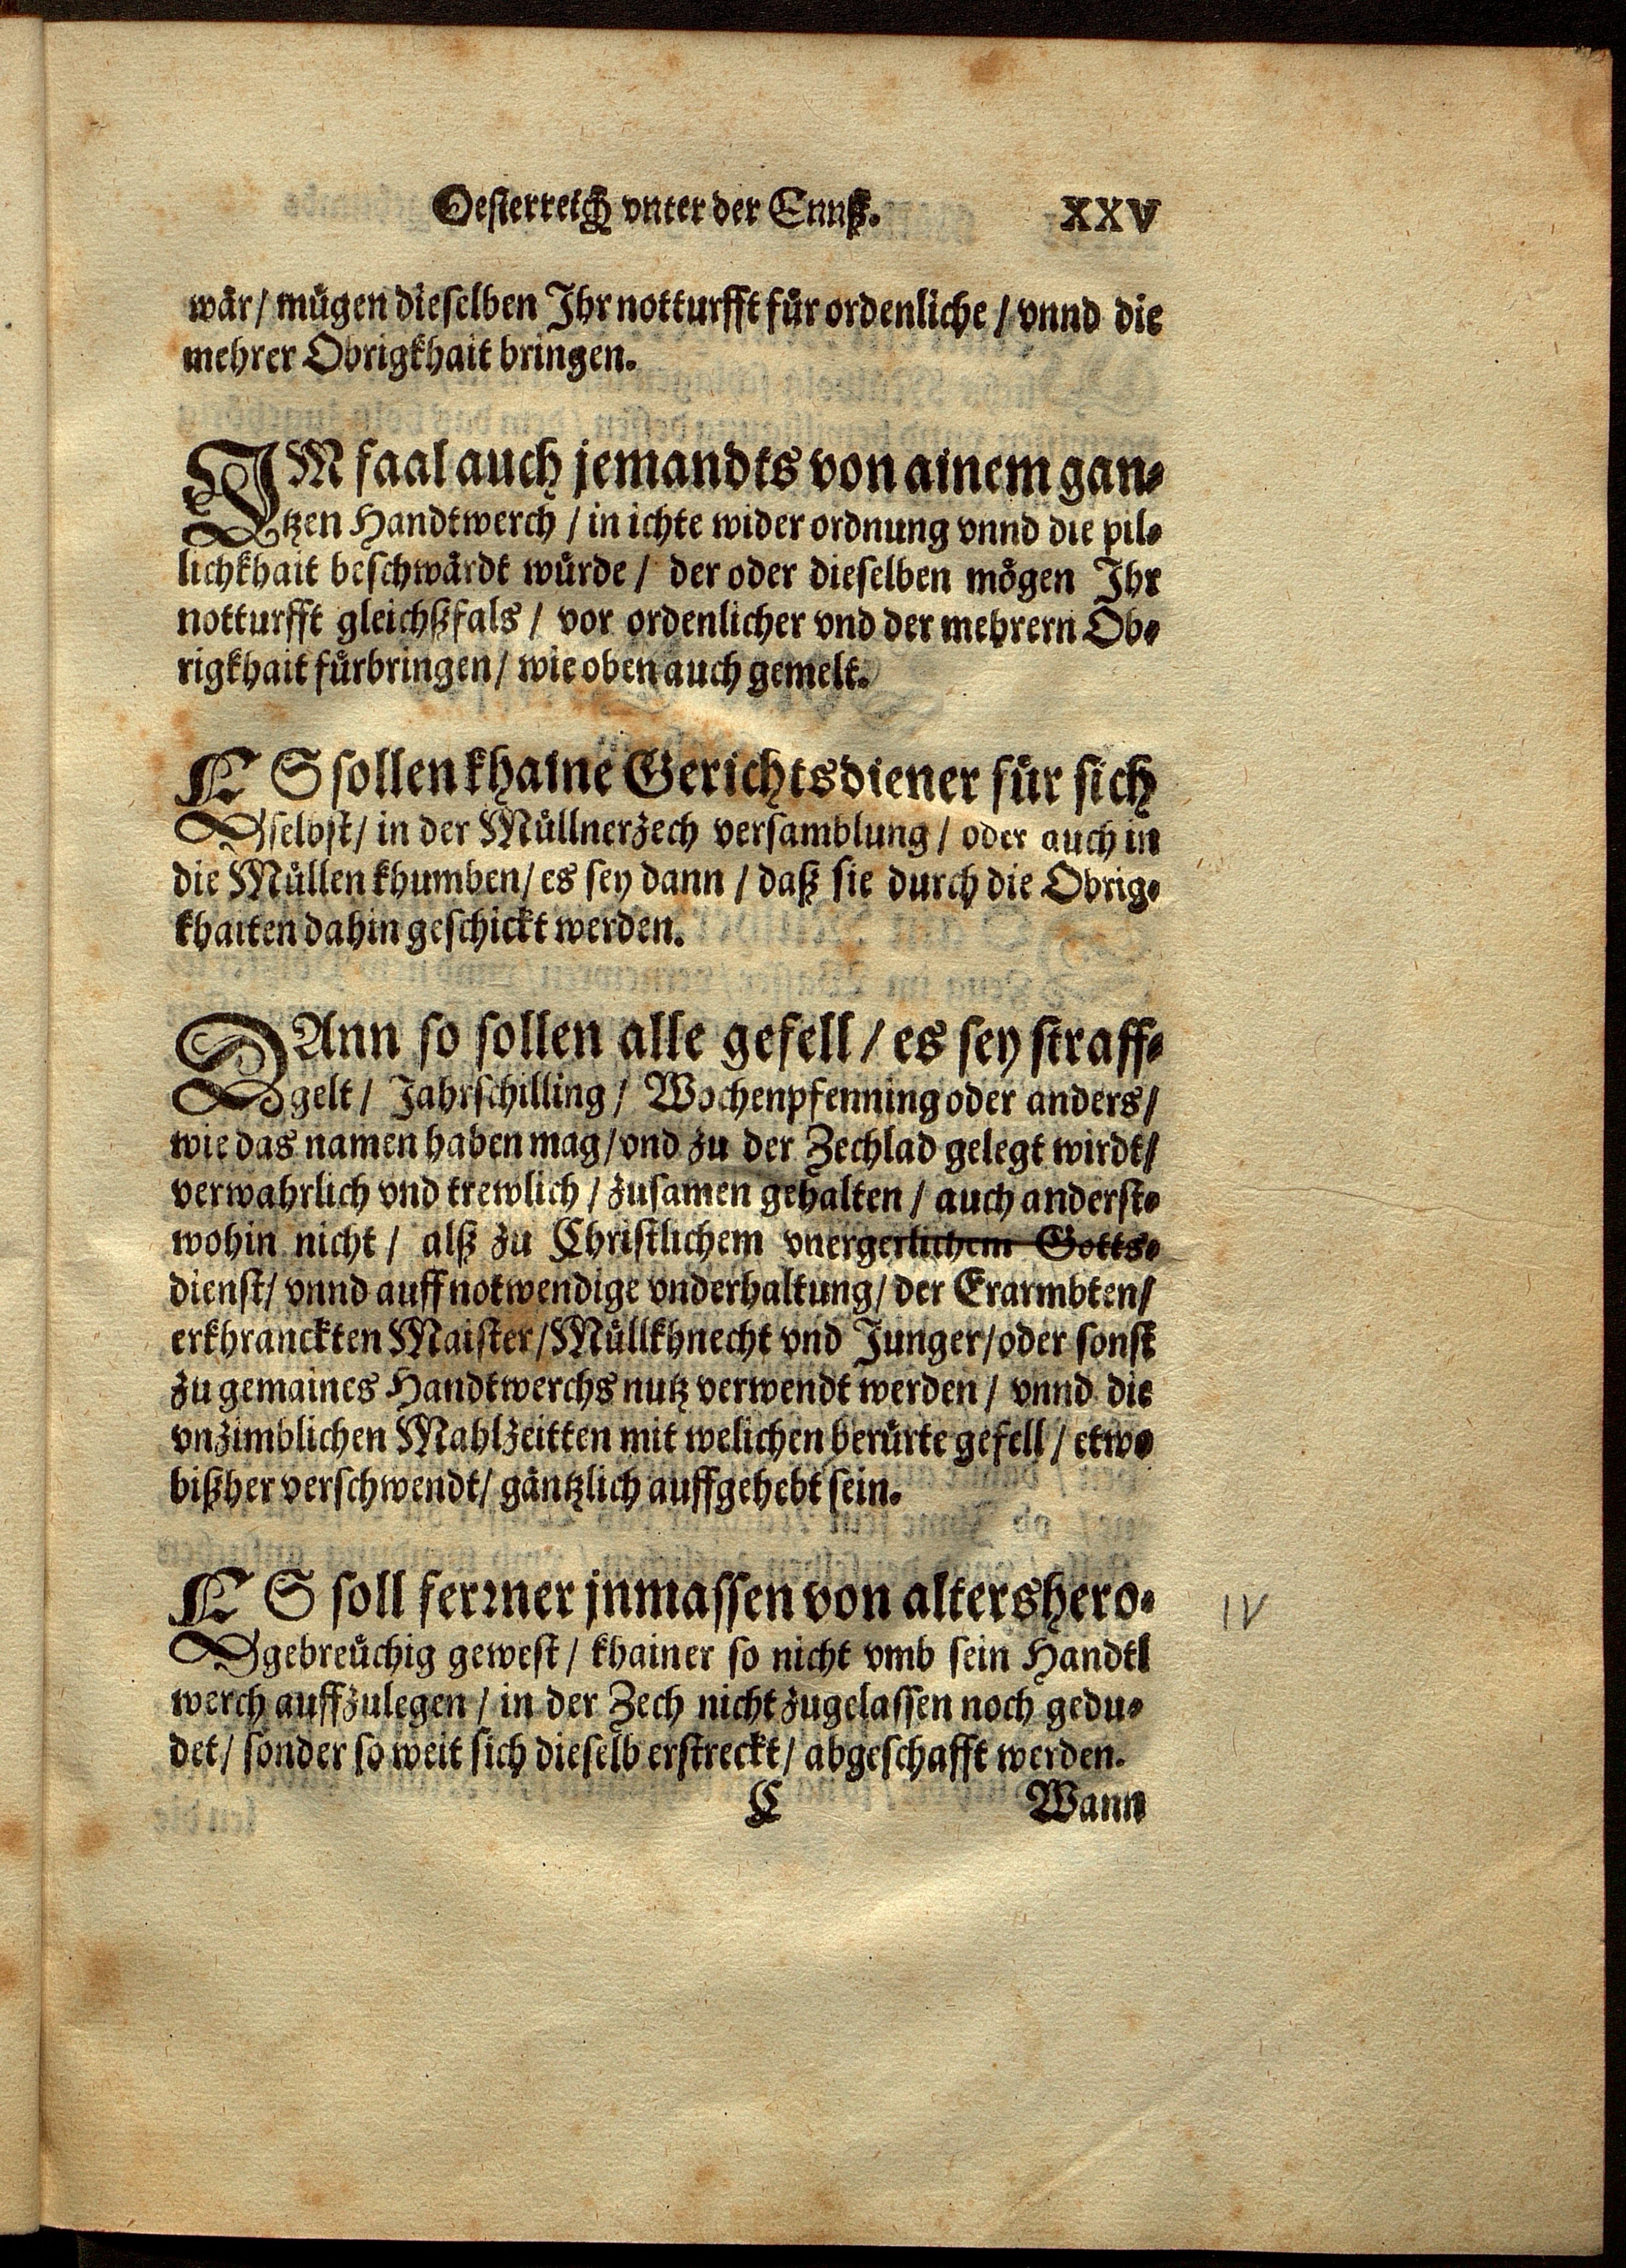 Oesterreich vnter der Ennß. XXV
wär / mügen dieselben Ihr notturfft für ordenliche / vnnd die
mehrer Obrigkhait bringen.
IM faal auch jemandts von ainem gan⸗
tzen Handtwerch / in ichte wider ordnung vnnd die pil⸗
lichkhait beschwärdt würde / der oder dieselben mögen Ihr
notturfft gleichßfals / vor ordenlicher vnd der mehrern Ob⸗
rigkhait fürbringen / wie oben auch gemelt.
ES sollen khaine Gerichtsdiener für sich
selbst / in der Müllnerzech versamblung / oder auch in
die Müllen khumben / es sey dann / daß sie durch die Obrig⸗
khaiten dahin geschickt werden.
DAnn so sollen alle gefell / es sey straff⸗
gelt / Jahrschilling / Wochenpfenning oder anders /
wie das namen haben mag / vnd zu der Zechlad gelegt wirdt /
verwahrlich vnd trewlich / zusamen gehalten / auch anderst⸗
wohin nicht / alß zu Christlichem vnergerlichem Gotts⸗
dienst / vnnd auff notwendige vnderhaltung / der Erarmbten /
erkhranckten Maister / Müllkhnecht vnd Junger / oder sonst
zu gemaines Handtwerchs nutz verwendt werden / vnnd die
vnzimblichen Mahlzeitten mit welichen berürte gefell / etwo
bißher verschwendt / gäntzlich auffgehebt sein.
ES soll ferꝛner jnmassen von altershero⸗
gebreüchig gewest / khainer so nicht vmb sein Handtl
werch auffzulegen / in der Zech nicht zugelassen noch gedu⸗
det / sonder so weit sich dieselb erstreckt / abgeschafft werden.
C Wann
IV